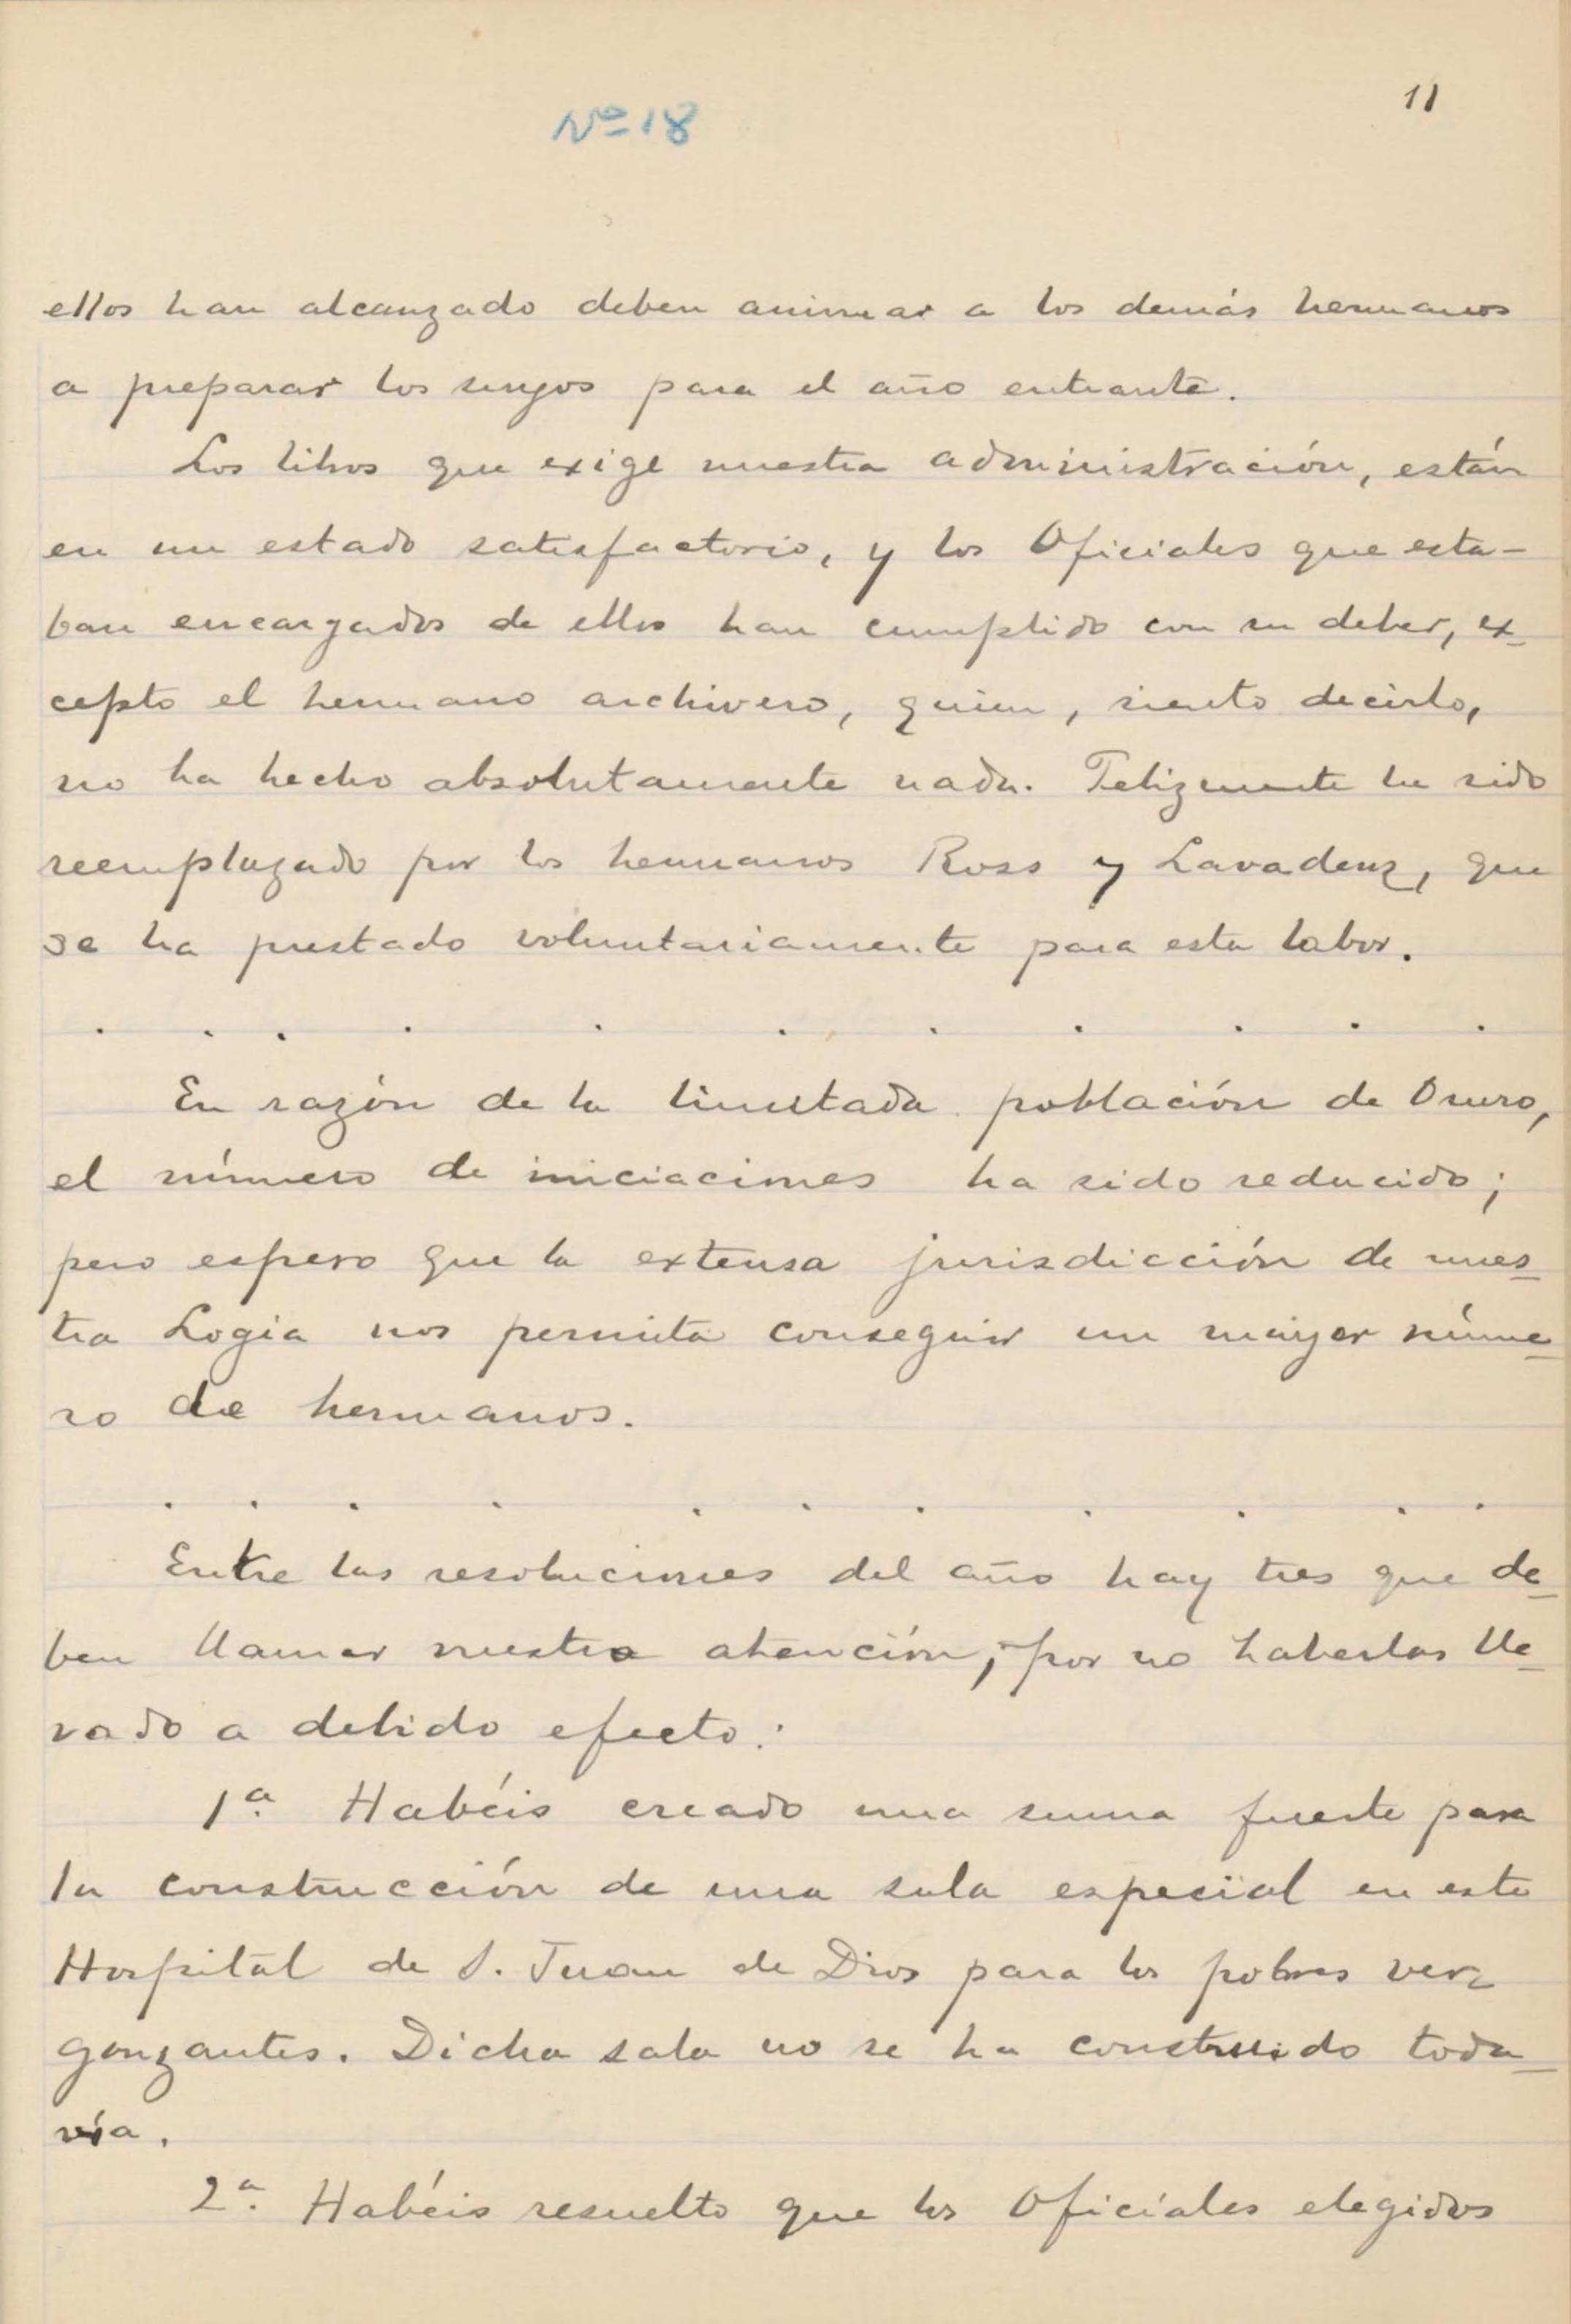 Nº 18
11
ellos han alcanzado deben animar a los demás hermanos
a preparar los suyos para el año entrante.
Los libros que exige nuestra administración, están
en un estado satisfactorio, y los Oficiales que esta-
ban encargados de ellos han cumplido con su deber, ex-
cepto el hermano archivero, quien, siento decirlo,
no ha hecho absolutamente nada. Felizmente ha sido
reemplazado por los hermanos Ross y Lavadenz, que
se ha prestado voluntariamente para esta labor.
. . . . . . . . . . .
En razón de la limitada población de Oruro,
el número de iniciaciones ha sido reducido;
pero espero que la extensa jurisdicción de nues-
tra Logia nos permita conseguir un mayor núme-
ro de hermanos.
. . . . . . . . . . .
Entre las resoluciones del año hay tres que de-
ben llamar nuestra atención, por no haberlas lle-
vado a debido efecto:
1ª. Habéis creado una suma fuerte para
la construcción de una sala especial en este
Hospital de S. Juan de Dios para los pobres ver-
gonzantes. Dicha sala no se ha construido toda-
vía.
2ª. Habéis resuelto que los Oficiales elegidos